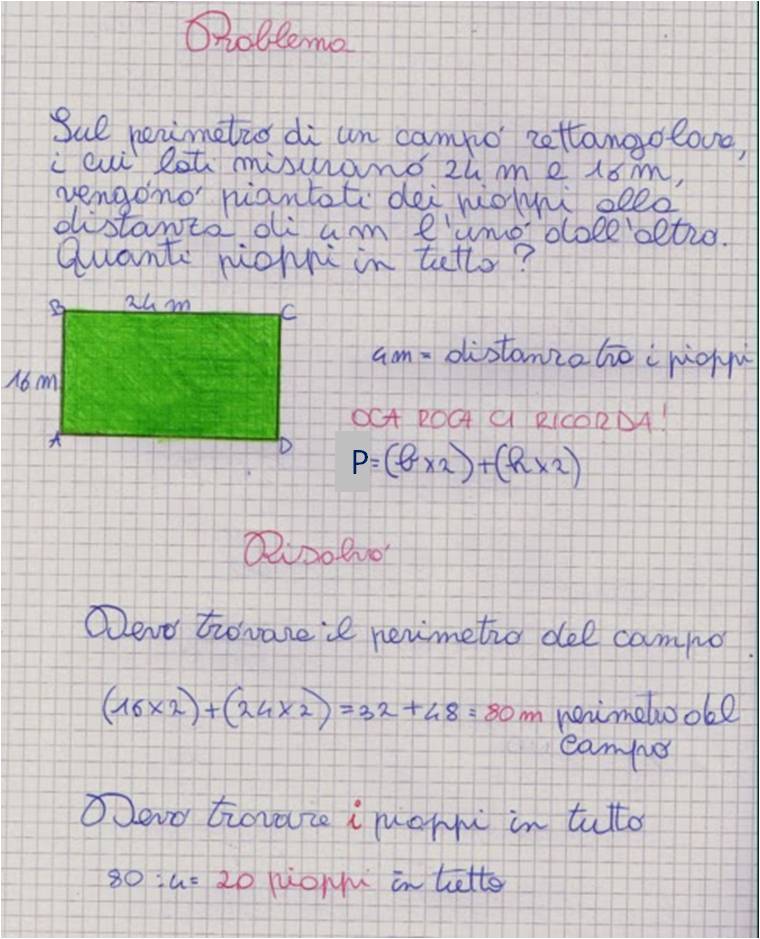 Problema
Sul perimetro di un campo rettangolare,
i cui lati misurano 24 m e 16 m,
vengono piantati dei pioppi alla
distanza di 4 m l'uno dall'altro.
Quanti pioppi in tutto?
B 24 m C
16 m
A D
4m = distanza tra i pioppi
OCA ROCA CI RICORDA!
P=(b×2)+(h×2)
Risolvo
Devo trovare il perimetro del campo
(16×2)+(24×2)=32+48=80 m perimetro del
campo
Devo trovare i pioppi in tutto
80:4= 20 pioppi in tutto